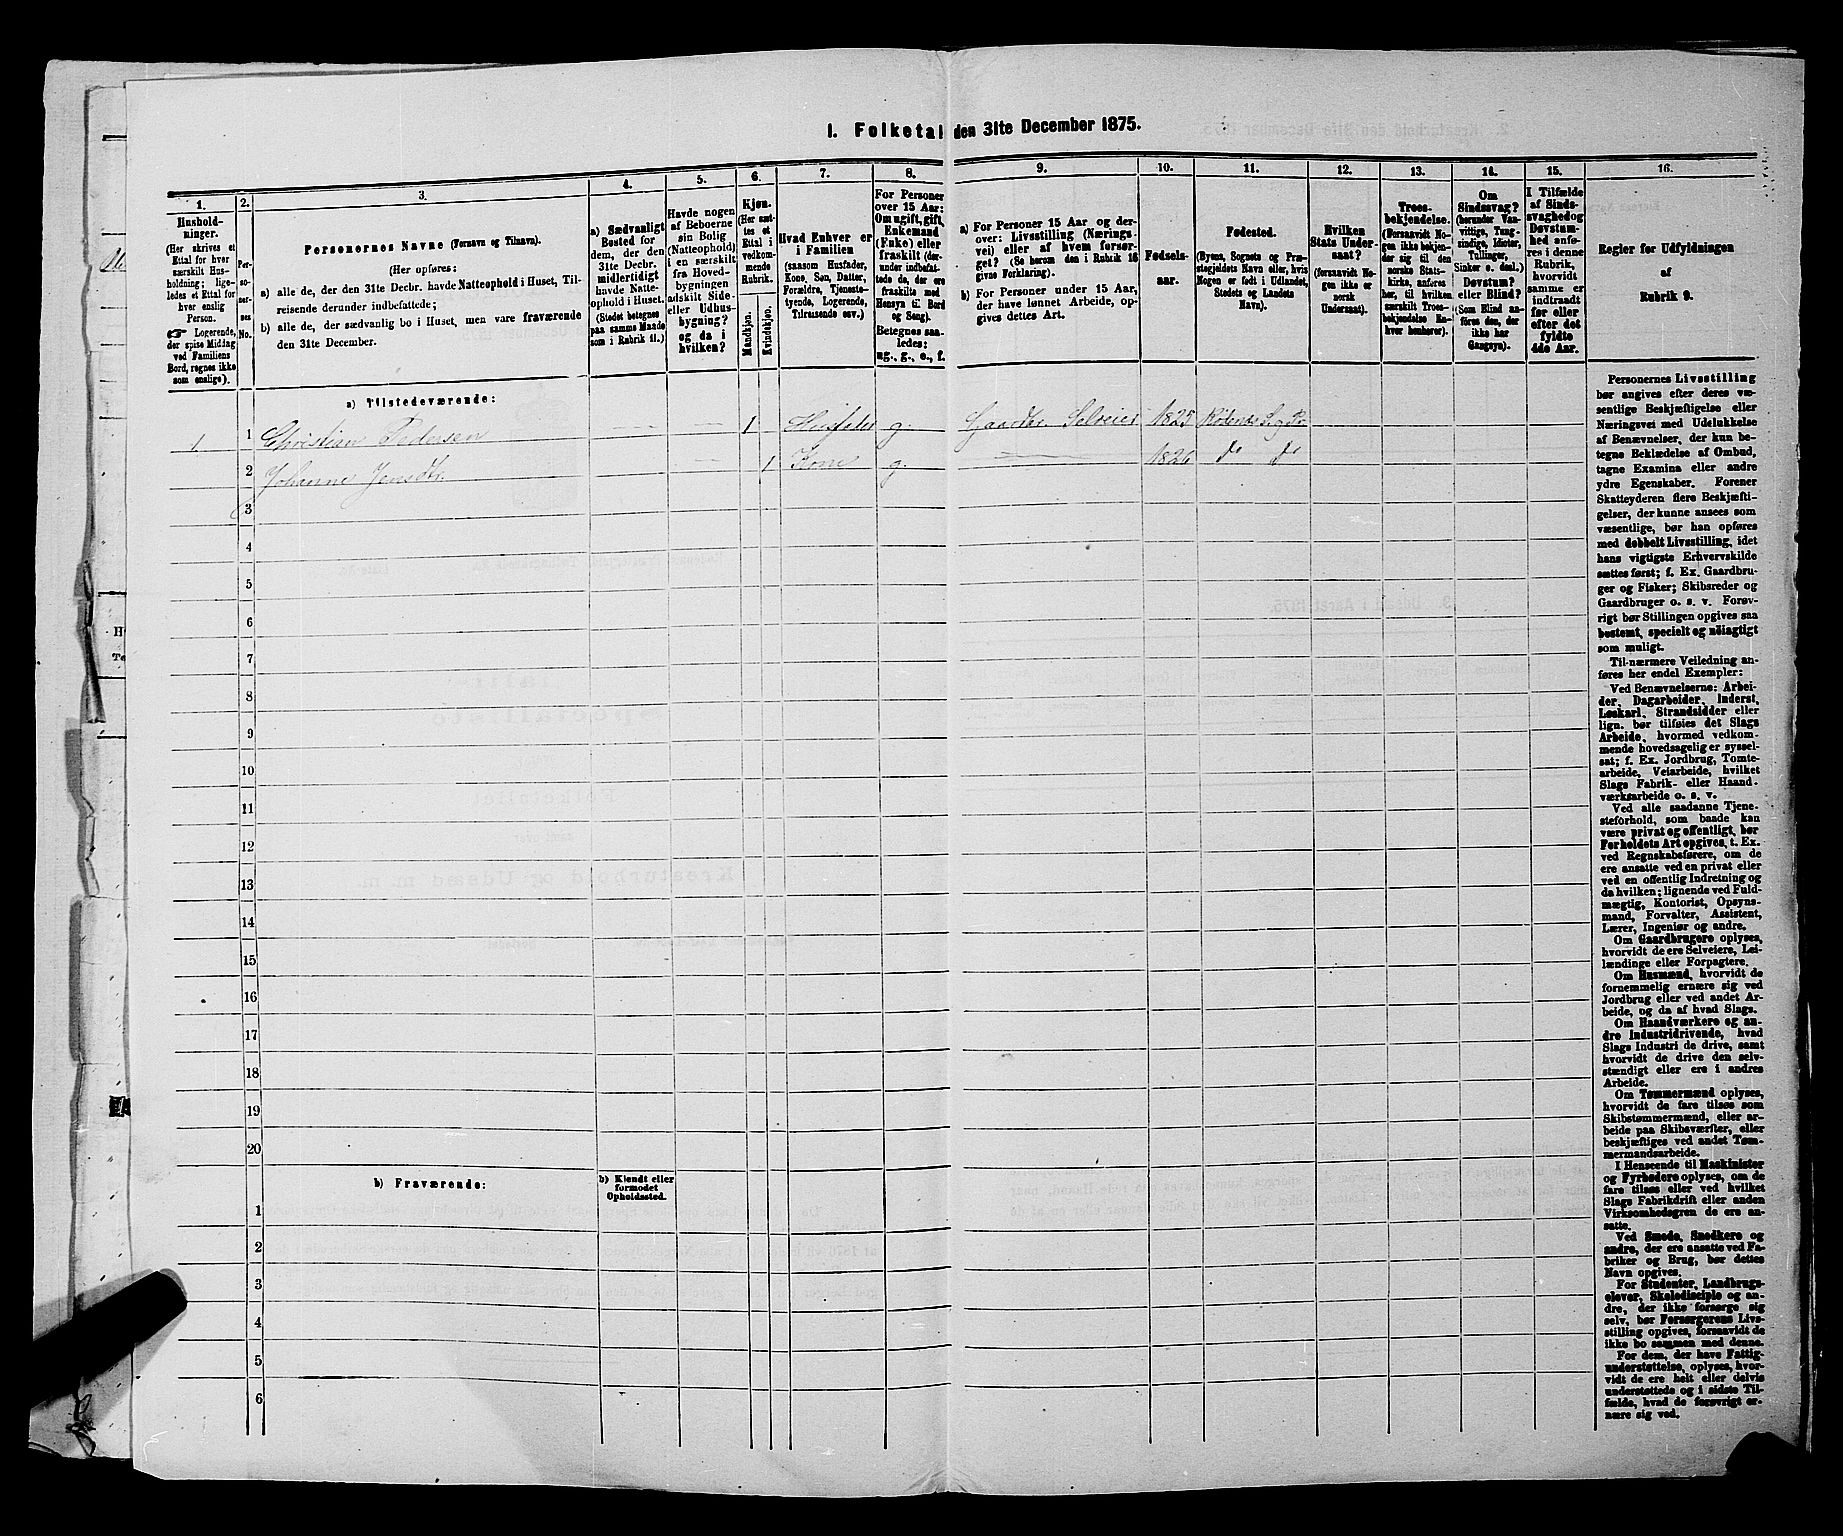 1. Folketal den 31te December 1875.
1.
Hushold-
ninger.
(Her skrives et
Ettal for hver
særskilt Hus-
holdning; lige-
ledes et Ettal for
hver enslig
Person.
☞ Logerende,
der spise Middag
ved Familiens
Bord, regnes ikke
som enslige).
2.
Per-
so-
ner-
nes
No.
3.
Personernes Navne (Fornavn og Tilnavn).
(Her opføres:
a) alle de, der den 31te Decbr. havde Natteophold i Huset, Til-
reisende derunder indbefattede;
b) alle de, der sædvanlig bo i Huset, men vare fraværende
den 31te December.
4.
a) Sædvanligt
Bosted for
dem, der den
31te Decbr.
midlertidigt
havde Natte-
ophold i Huset.
(Stedet betegnes
paa samme Maade
som i Rubrik 11.)
5.
Havde nogen
af Beboerne
sin Bolig
(Natteophold)
i en særskilt
fra Hoved-
bygningen
adskilt Side-
eller Udhus-
bygning?
og da i
hvilken?
6.
Kjøn.
(Her sæt-
tes et
Ettal i
vedkom-
mende
Rubrik.
Mandkjøn.
Kvindekjøn.
7.
Hvad Enhver er
i Familien
(saasom Husfader,
Kone, Søn, Datter,
Forældre, Tjeneste-
tyende, Logerende,
Tilreisende osv.)
8.
For Personer
over 15 Aar:
Om ugift, gift,
Enkemand
(Enke) eller
fraskilt (der-
under indbefat-
tede de, der ere
fraskilte med
Hensyn til Bord
og Seng).
Betegnes saa-
ledes:
ug., g., e., f.
9.
a) For Personer 15 Aar og der-
over: Livsstilling (Nærings-
vei) eller af hvem forsør-
get? (Se herom den i Rubrik 16
givne Forklaring).
b) For Personer under 15 Aar,
der have lønnet Arbeide, op-
gives dettes Art.
10.
Fødsels-
aar.
11.
Fødested.
(Byens, Sognets og Præ-
stegjeldets Navn eller, hvis
Nogen er født i Udlandet,
Stedets og Landets
Navn).
12.
Hvilken
Stats Under-
saat?
(forsaavidt No-
gen ikke er
norsk
Undersaat).
13.
Troes-
bekjendelse.
(Forsaavidt No-
gen ikke bekjen-
der sig til den
norske Stats-
kirke, anføres
her, til hvilken
særskilt Troes-
bekjendelse En-
hver henhører).
14.
Om
Sindssvag?
(herunder Van-
vittige, Tung-
sindige, Idioter,
Sinker o. desl.)
Døvstum?
eller Blind?
(Som Blind an-
føres den, der
ikke har
Gangsyn).
15.
I Tilfælde
af Sinds-
svaghed og
Døvstum-
hed anfø-
res i denne
Rubrik,
hvorvidt
samme er
indtraadt
før eller
efter det
fyldte
4de Aar.
16.
Regler for Udfyldningen
af
Rubrik 9.
a) Tilstedeværende:
1 1 Christian Pedersen 1 Husfader g. Gaardbr. Selveier 1825
2 Johanne Jensdtr. 1 Kone g. 1826 do do
3
4
5
6
7
8
9
10
11
12
13
14
15
16
17
18
19
20
b) Fraværende:
b) Kjendt eller
formodet
Opholdssted.
1
2
3
4
5
6
Personernes Livsstilling
bør angives efter deres væ-
sentlige Beskjæftigelse eller
Næringsvei med Udelukkelse
af Benævnelser, der kun be-
tegne Beklædelse af Ombud,
tagne Examina eller andre
ydre Egenskaber. Forener
Skatteyderen flere Beskjæfti-
gelser, der kunne ansees som
væsentlige, bør han opføres
med dobbelt Livsstilling, idet
hans vigtigste Erhvervskilde
sættes først; f. Ex. Gaardbru-
ger og Fisker; Skibsreder og
Gaardbruger o. s. v. Forøv-
rigt bør Stillingen opgives saa
bestemt, specielt og nøiagtigt
som muligt.
Til nærmere Veiledning an-
føres her endel Exempler:
Ved Benævnelserne: Arbei-
der, Dagarbeider, Inderst,
Løskarl, Strandsidder eller
lign. bør tilføies det Slags
Arbeide, hvormed vedkom-
mende hovedsagelig er syssel-
sat; f. Ex. Jordbrug, Tomte-
arbeide, Veiarbeide, hvilket
Slags Fabrik- eller Haand-
værksarbeide o. s. v.
Ved alle saadanne Tjene-
steforhold, som baade kan
være privat og offentligt, bør
Forholdets Art opgives, t. Ex.
ved Regnskabsførere, om de
ere ansatte ved en privat eller
ved en offentlig Indretning og
da hvilken; lignende ved Fuld-
mægtig, Kontorist, Opsyns-
mand, Forvalter, Assistent,
Lærer, Ingeniør og andre.
Om Gaardbrugere oplyses,
hvorvidt de ere Selveiere, Lei-
lændinge eller Forpagtere.
Om Husmænd, hvorvidt de
fornemmelig ernære sig ved
Jordbrug eller ved andet Ar-
beide, og da af hvad Slags.
Om Haandværkere og an-
dre Industridrivende, hvad
Slags Industri de drive, samt
hvorvidt de drive den selv-
stændigt eller ere i andres
Arbeide.
Om Tømmermænd oplyses,
hvorvidt de fare tilsøs som
Skibstømmermænd, eller ar-
beide paa Skibsværfter, eller
beskjæftiges ved andet Tøm-
mermandsarbeide.
I Henseende til Maskinister
og Fyrbødere oplyses, om de
fare tilsøs eller ved hvilket
Slags Fabrikdrift eller anden
Virksomhedsgren de ere an-
satte.
Ved Smede, Snedkere og
andre, der ere ansatte ved Fa-
briker og Brug, bør dettes
Navn opgives.
For Studenter, Landbrugs-
elever, Skoledisciple og an-
dre, der ikke forsørge sig
selv, bør Forsørgerens Livs-
stilling opgives, forsaavidt de
ikke bo sammen med denne.
For dem, der have Fattig-
understøttelse, oplyses, hvor-
vidt de ere helt eller delvis
understøttede og i sidste Til-
fælde, hvad de forøvrigt er-
nære sig ved.